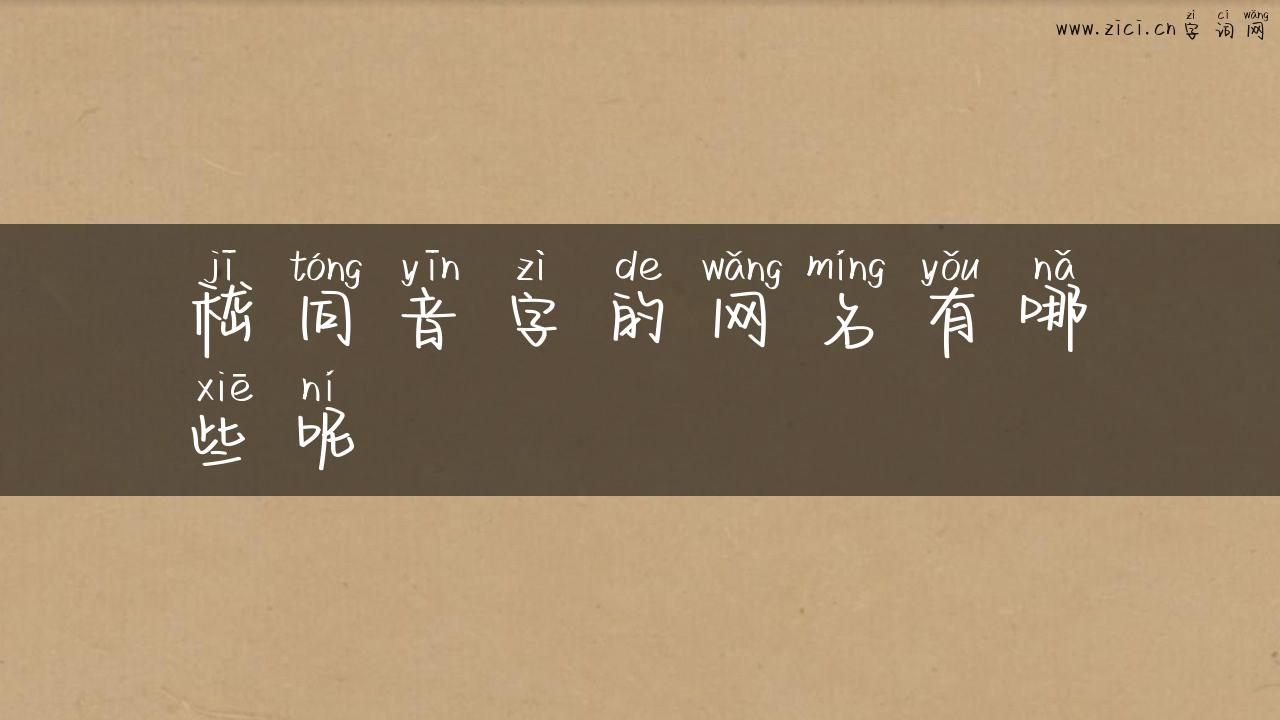 www.zici.cn zì cí wǎng 字词网
jī tóng yīn zì de wǎng míng yǒu nǎ
同音字的网名有哪
xiē ní
些呢